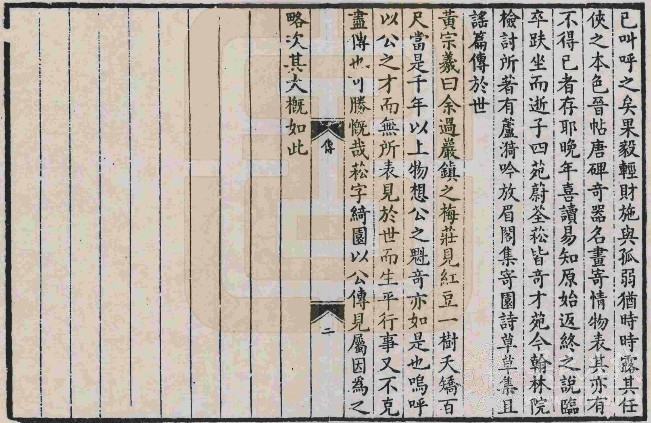 已叫呼之矣果毅輕財施與孤弱猶時時露其任
俠之本色晉帖唐碑奇器名畫寄情物表其亦有
不得已者存耶晚年喜讀易知原始返終之說臨
卒趺坐而逝子四苑蔚荃菘皆奇才苑今翰林院
檢討所著有蘆漪吟放眉閣集寄園詩草草集且
謠篇傳於世
黃宗羲曰余過巖鎮之梅莊見紅豆一樹夭矯百
尺當是千年以上物想公之魁奇亦如是也嗚呼
以公之才而無所表見於世而生平行事又不克
盡傳也可勝慨哉菘字綺園以公傳見屬因為之
略次其大概如此
傳
二